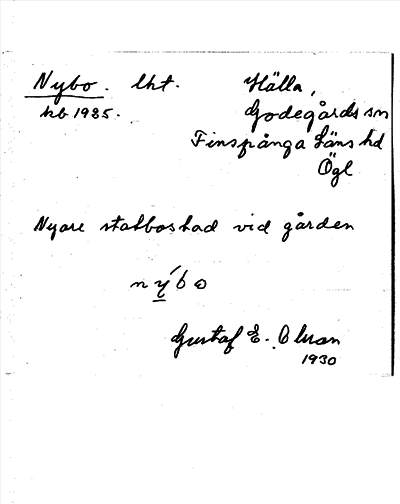 Nybo. lht. Hälla,
kb 1925. Godegårds sn
Finspånga Läns hd
Ögl
Nyare statbostad vid gården
nýbo
Gustaf E. Olson
1930